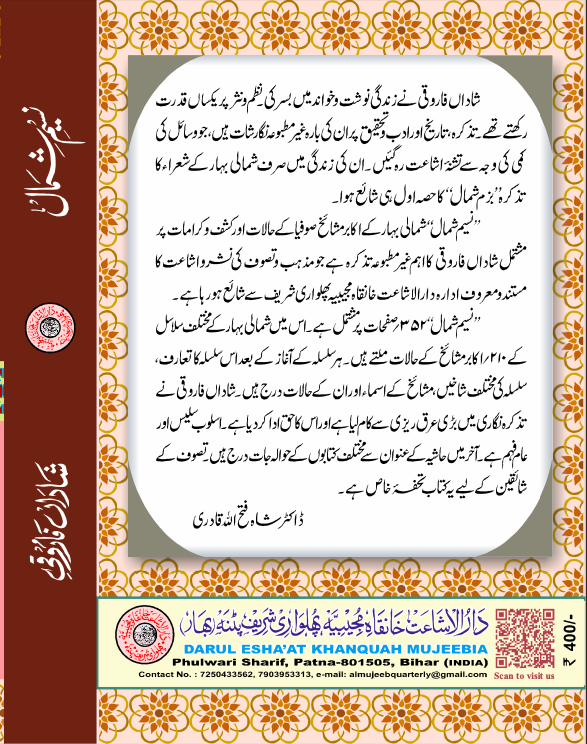 شاداں فاروقی نے زندگی نوشت و خواند میں بسر کی۔ نظم و نثر پر یکساں قدرت
رکھتے تھے۔ تذکرہ، تاریخ اور ادب و تحقیق پر ان کی بارہ غیر مطبوعہ نگارشات ہیں، جو وسائل کی
کمی کی وجہ سے تشنۂ اشاعت رہ گئیں۔ ان کی زندگی میں صرف شمالی بہار کے شعراء کا
تذکرہ ”بزم شمال“ کا حصہ اول ہی شائع ہوا۔
”نسیم شمال“ شمالی بہار کے اکابر مشائخ صوفیا کے حالات اور کشف و کرامات پر
مشتمل شاداں فاروقی کا اہم غیر مطبوعہ تذکرہ ہے جو مذہب و تصوف کی نشر و اشاعت کا
مستند و معروف ادارہ دار الاشاعت خانقاہ مجیبیہ پھلواری شریف سے شائع ہو رہا ہے۔
”نسیم شمال“ ۳۵۲ صفحات پر مشتمل ہے۔ اس میں شمالی بہار کے مختلف سلاسل
کے ۲۱۰؍ اکابر مشائخ کے حالات ملتے ہیں۔ ہر سلسلہ کے آغاز کے بعد اس سلسلہ کا تعارف،
سلسلہ کی مختلف شاخیں، مشائخ کے اسماء اور ان کے حالات درج ہیں۔ شاداں فاروقی نے
تذکرہ نگاری میں بڑی عرق ریزی سے کام لیا ہے اور اس کا حق ادا کر دیا ہے۔ اسلوب سلیس اور
عام فہم ہے۔ آخر میں حاشیہ کے عنوان سے مختلف کتابوں کے حوالہ جات درج ہیں۔ تصوف کے
شائقین کے لیے یہ کتاب تحفۂ خاص ہے۔
ڈاکٹر شاہ فتح اللہ قادری
نسیم شمال
شاداں فاروقی
دار الاشاعت خانقاہ مجیبیہ پھلواری شریف پٹنہ (بہار)
DARUL ESHA'AT KHANQUAH MUJEEBIA
Phulwari Sharif, Patna-801505, Bihar (INDIA)
Contact No. : 7250433562, 7903953313, e-mail: almujeebquarterly@gmail.com
Scan to visit us
₹ 400/-